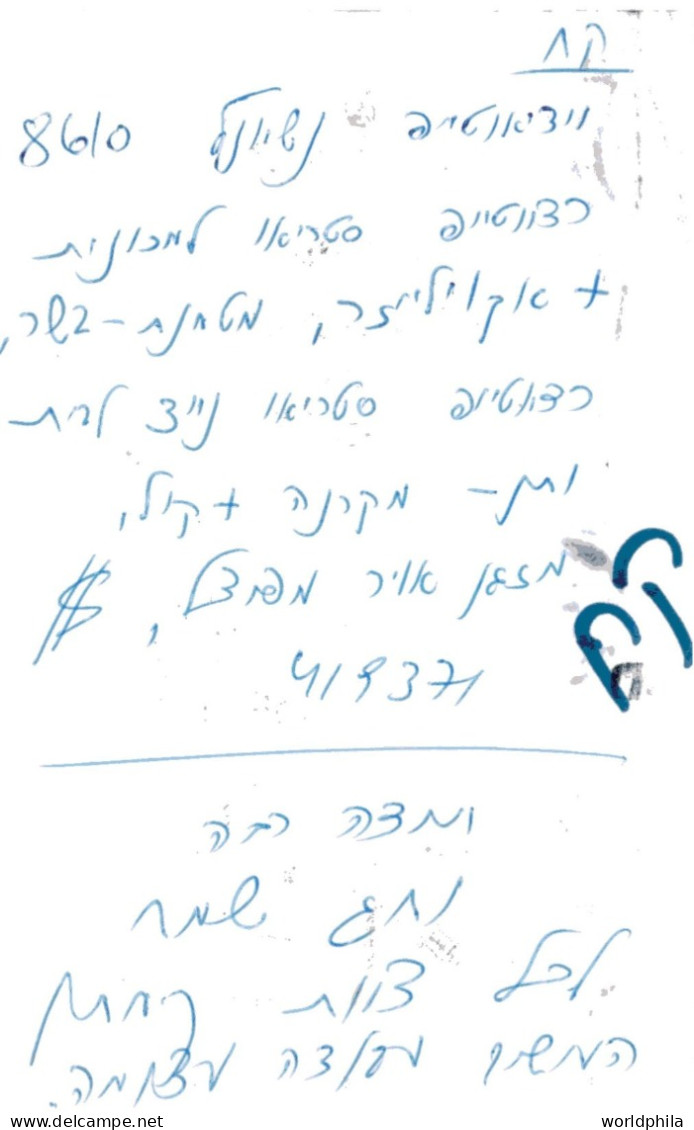 קח
ווידיאוטייפ נשיונל 8610
רדיוטייפ סטריאו למכונית
+ אקולייזר, מטחנת-בשר,
רדיוטייפ סטריאו נייד לבית
מקרנה + קול,
מזגן אויר מפוצל, $
419371
תודה רבה
וחג שמח
לכל צוות
המשך עבודה עצומה.
www.delcampe.net
worldphila